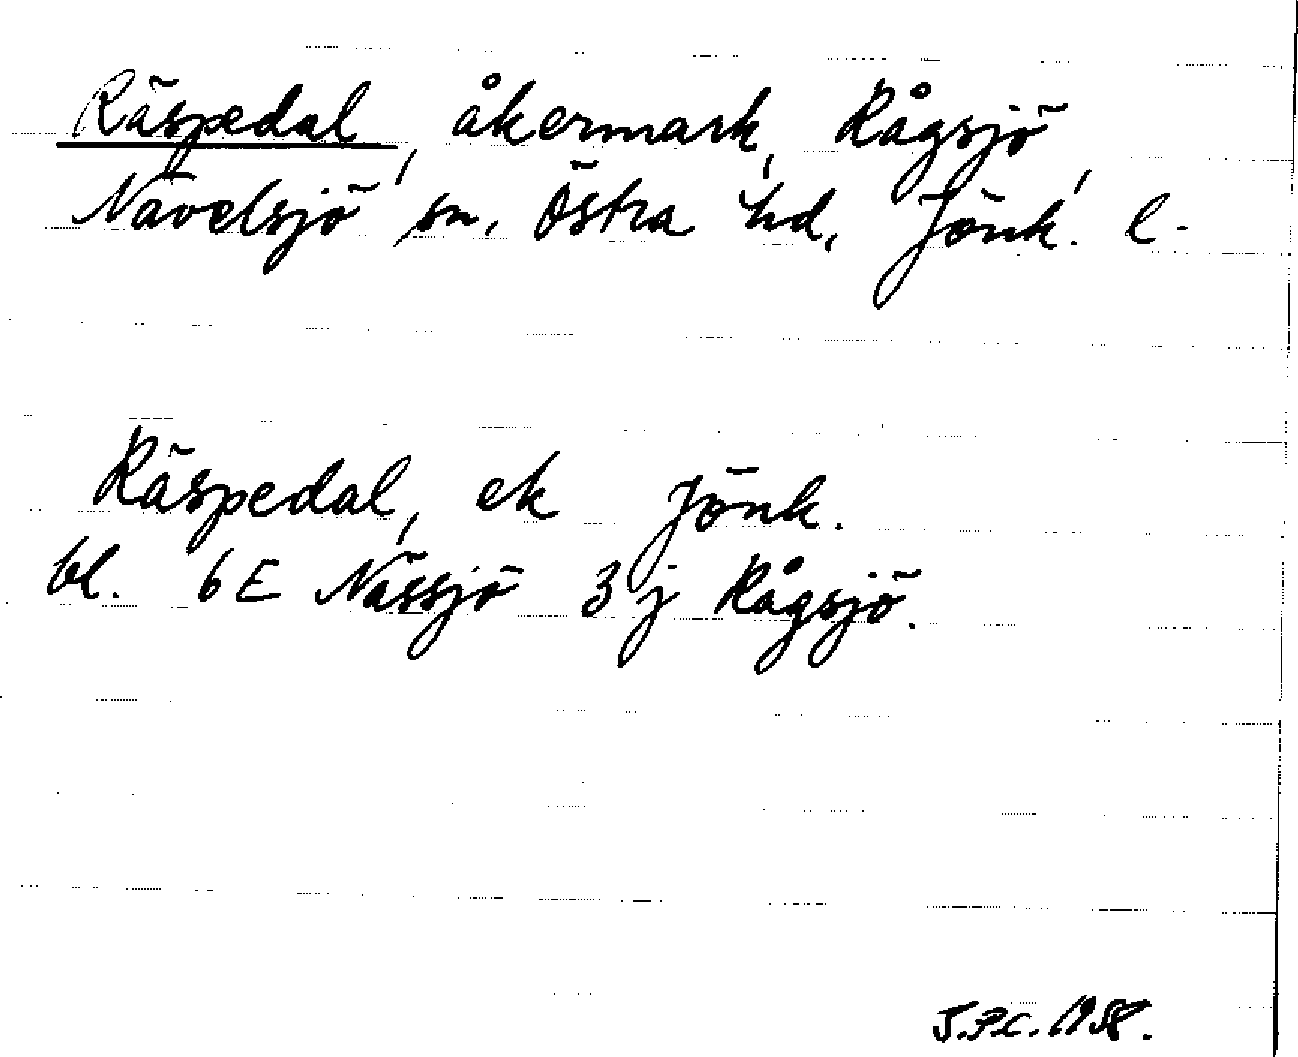 Räspedal, åkermark, Rågsjö,
Nävelsjö sn. Östra hd, Jönk. l.
Räspedal, ek Jönk.
bl. 6E Nässjö 3j Rågsjö.
J.P.C. 1958.